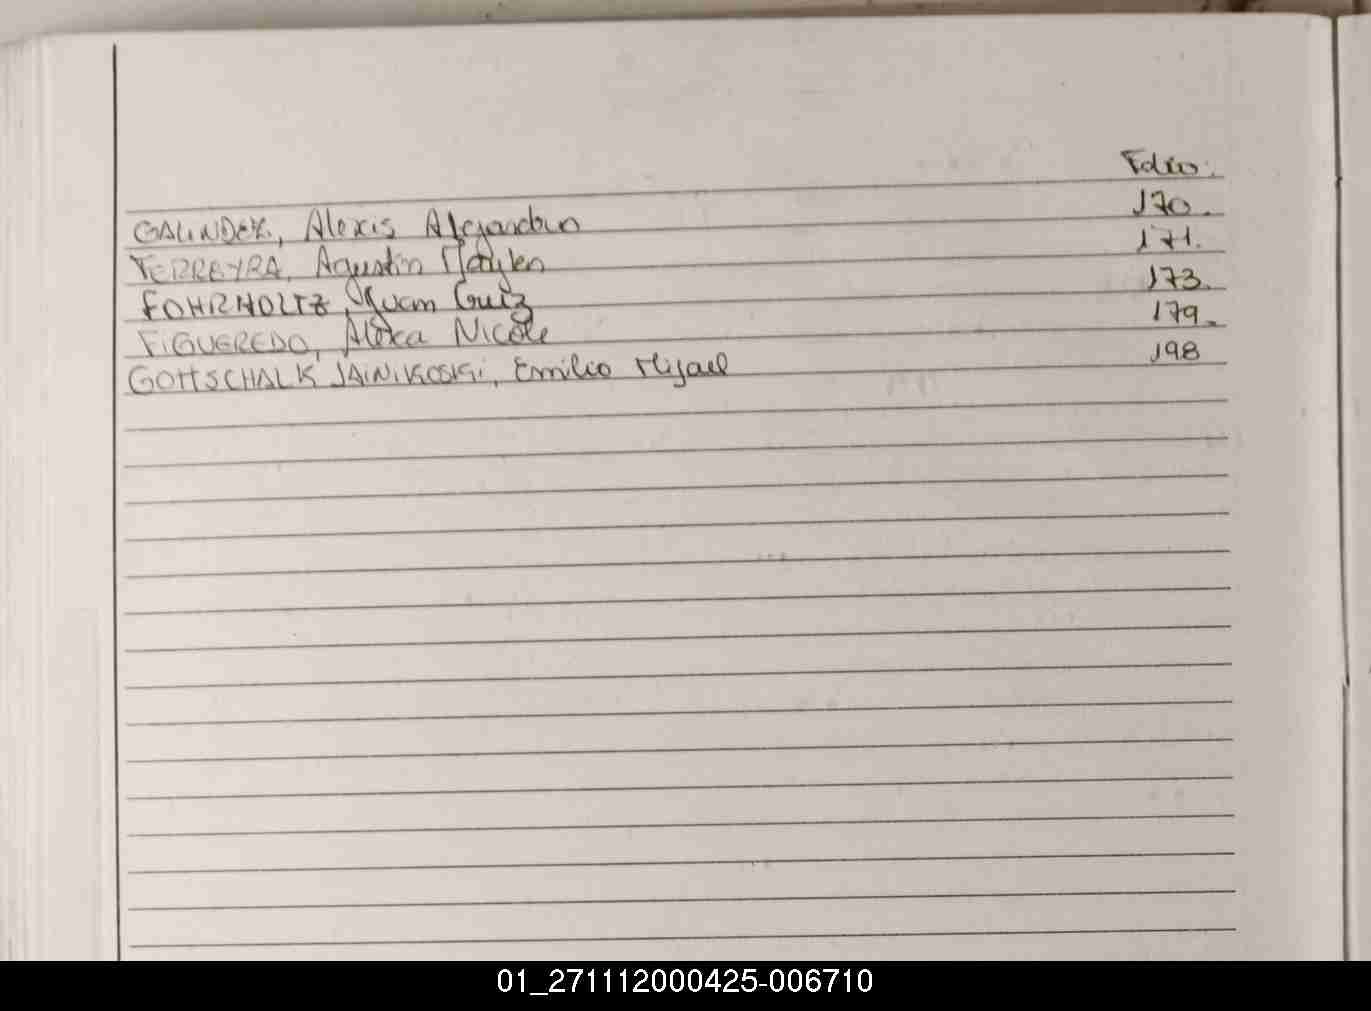 Folio.
GALINDEZ, Alexis Alejandro 170.
FERREYRA, Agustin 171.
FOHRHOLTZ, Juan Cruz 173.
FIGUEREDO, Alexa Nicole 179.
GOTTSCHALK JAINIKOSKI, Emilio Mijael 198
01_271112000425-006710